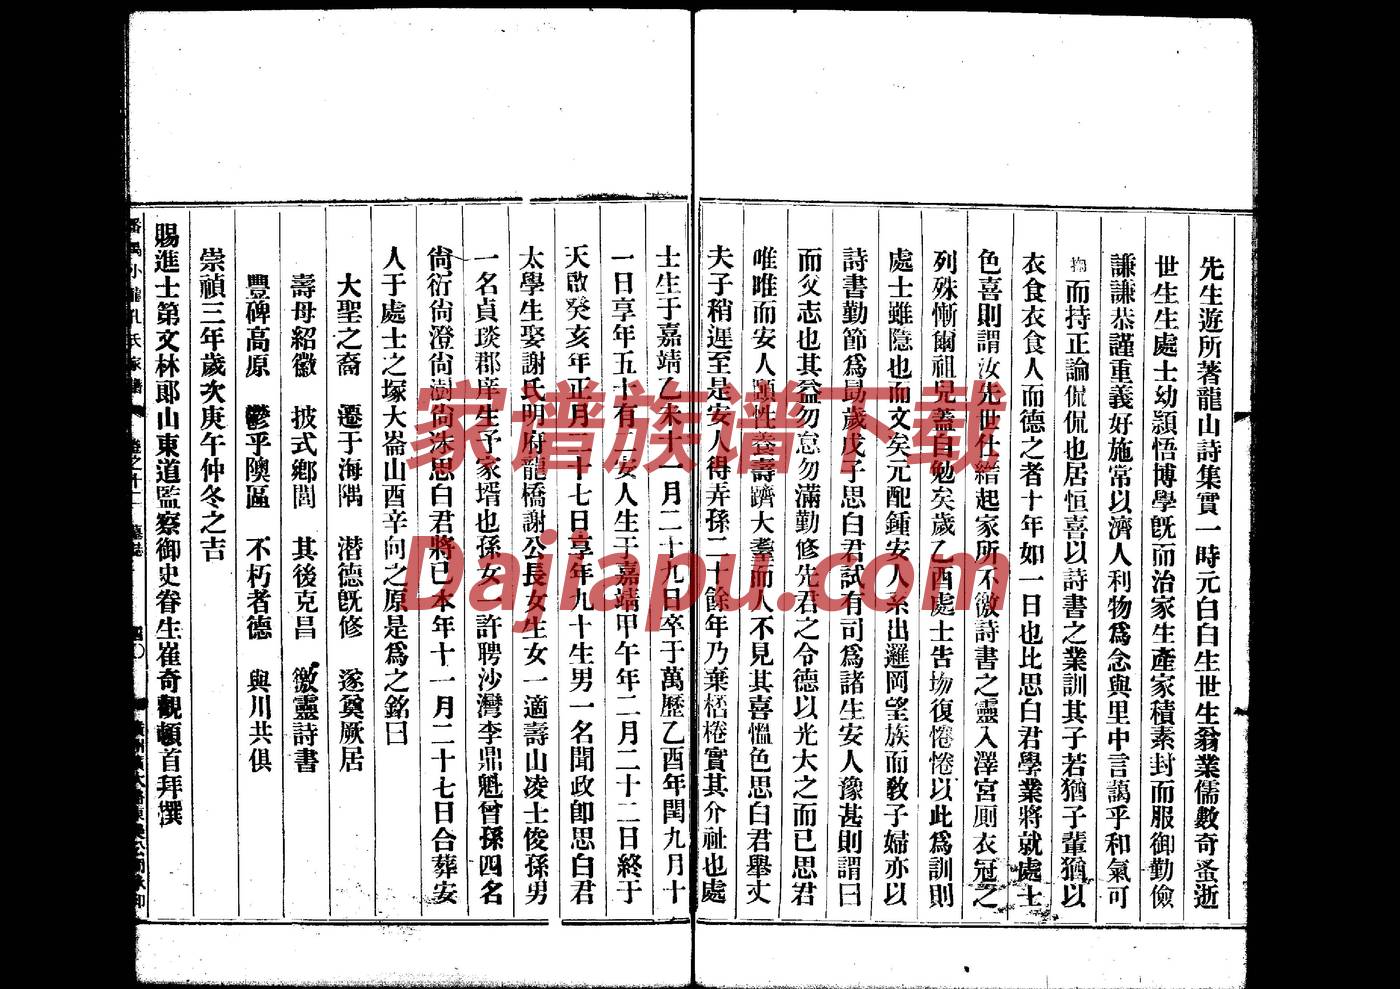 先生遊所著龍山詩集實一時元白白生世生翁業儒數奇蚤逝
世生生處士幼頴悟博學旣而治家生產家積素封而服御勤儉
謙謙恭謹重義好施常以濟人利物爲念與里中言藹乎和氣可
掬而持正論侃侃也居恒喜以詩書之業訓其子若猶子輩猶以
衣食衣衣食人而德之者十年如一日也比思白君學業將就處士
色喜則謂汝先世仕縉起家所不徹詩書之靈入澤宮厠衣冠之
列殊慚爾祖兒蓋自勉矣歲乙酉處士吿坳復惓惓以此爲訓則
處士雖隱也而文矣元配鍾安人系出邏岡望族而敎子婦亦以
詩書勤節爲勗歲戊子思白君試有司爲諸生安人豫甚則謂曰
而父志也其益勿怠勿滿勤修先君之令德以光大之而已思君
唯唯而安人頤性養壽躋大耋而人不見其喜慍色思白君舉丈
夫子稍遲至是安人得弄孫二十餘年乃棄栝棬實其介祉也處
士生于嘉靖乙未十一月二十九日卒于萬歷乙酉年閏九月十
一日享年五十有一安人生于嘉靖甲午年二月二十二日終于
天啟癸亥年正月二十七日享年九十生男一名聞政卽思白君
太學生娶謝氏明府龍橋謝公長女生女一適壽山凌士俊孫男
一名貞琰郡庠生予家壻也孫女一許聘沙灣李鼎魁曾孫四名
尙衍尙澄尙澍尙洙思白君將已本年十一月二十七日合葬安
人于處士之塚大崙山酉辛向之原是爲之銘曰
大聖之裔 遷于海隅 潛德旣修 遂奠厥居
壽母紹徽 披式鄉閭 其後克昌 徼靈詩書
豐碑高原 鬱乎隩區 不朽者德 與川共俱
崇禎三年歲次庚午仲冬之吉
賜進士第文林郞山東道監察御史眷生崔奇觀頓首拜撰
番禺小龍孔氏家譜 卷之十二 墓誌
家谱族谱下载
Dajiapu.com